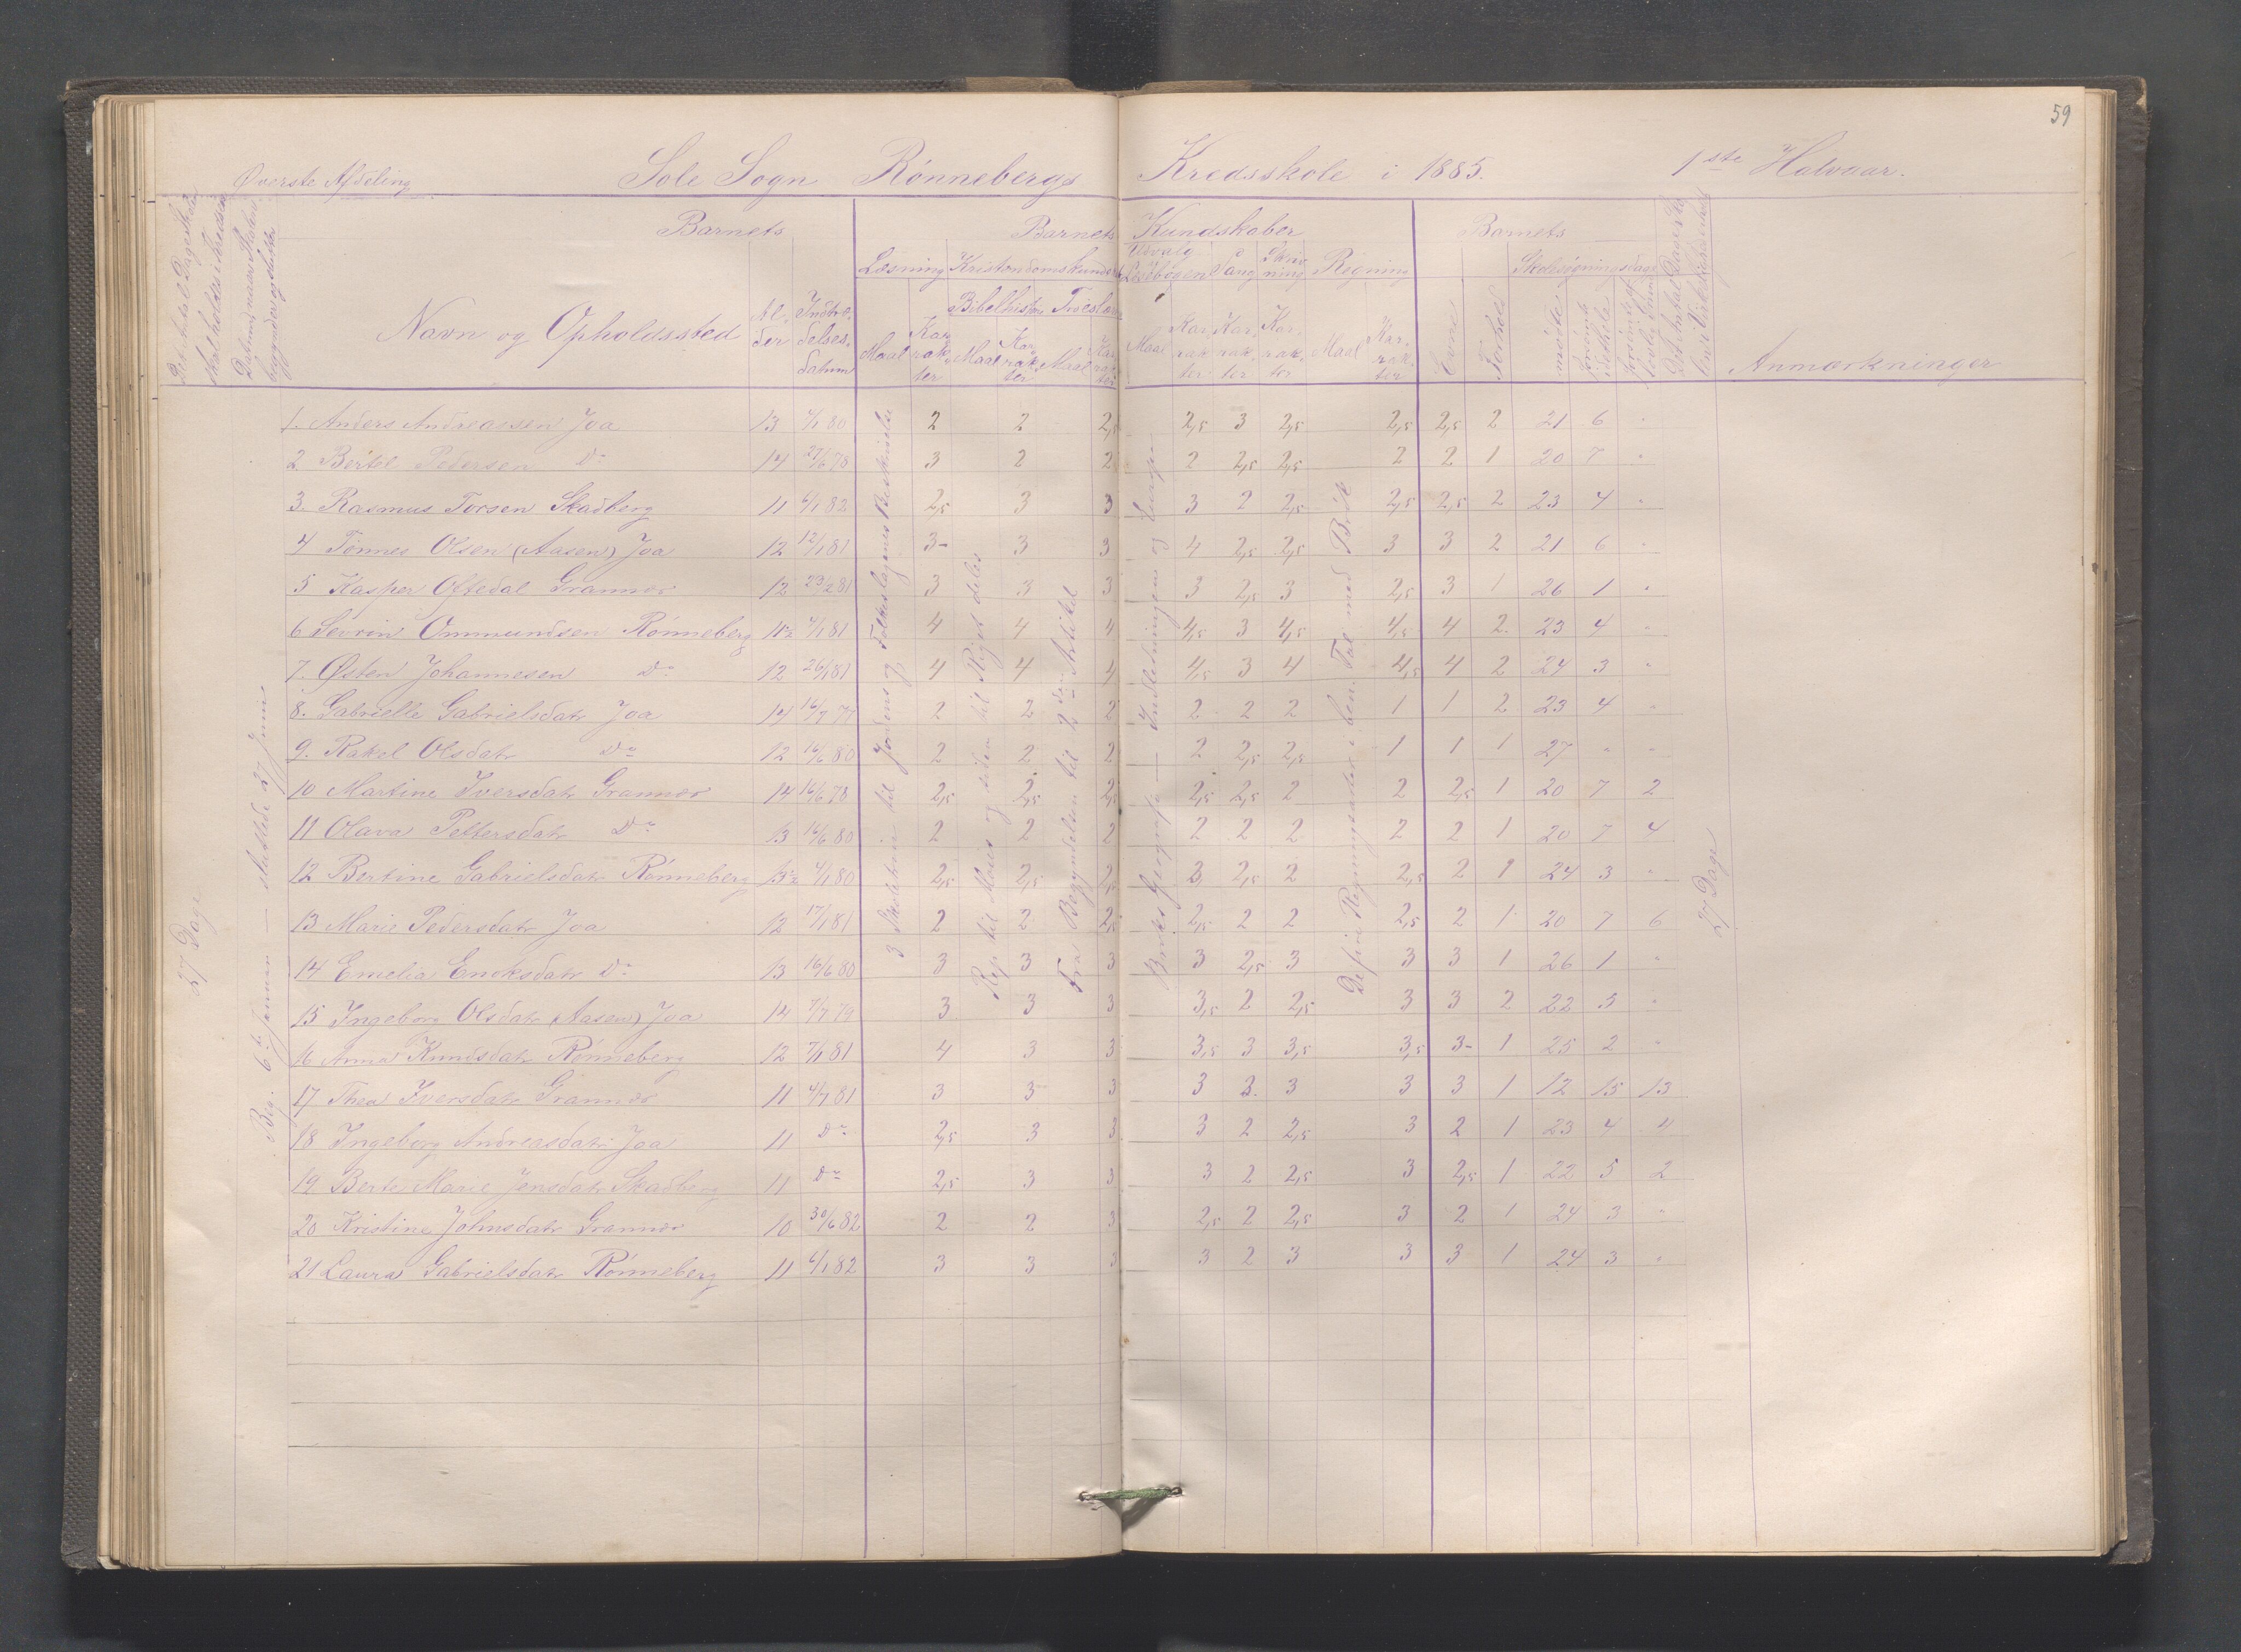 59
Øverste Afdeling Sole Sogn Rønnebergs Kredsskole i 1885. 1ste Halvaar.
Barnets Barnets Kundskaber Barnets
Læsning Kristendomskundsk. Udvalg Læsebogen Sang Skrivning Regning Skolesøgningsdage
Bibelhistorie Troeslære
Navn og Opholdssted Alder Indtrædelsesdatum Maal Karakter Maal Karakter Maal Karakter Maal Karakter Karakter Karakter Maal Karakter Evne Forhold mødte Anmærkninger
1. Anders Andreassen Joa 13 7/1 80 2 2 2,5 2,5 3 2,5 2,5 2,5 2 21 6 "
2 Bertel Pedersen Do 14 27/6 78 3 2 2 2 2,5 2,5 2 2 1 20 7 "
3. Rasmus Torsen Skadberg 11 6/1 82 2,5 3 3 3 2 2,5 2,5 2,5 2 23 4 "
4 Tønnes Olsen (Aasen) Joa 12 12/1 81 3- 3 3 4 2,5 2,5 3 3 2 21 6 "
5 Kasper Oftedal Grannes 12 23/2 81 3 3 3 3 2,5 3 2,5 3 1 26 1 "
6 Sevrin Ommundsen Rønneberg 11½ 7/1 81 4 4 4 4,5 3 4,5 4,5 4 2. 23 4 "
7. Østen Johannesen Do 12 26/1 81 4 4 4 4,5 3 4 4,5 4 2 24 3 "
8. Gabrielle Gabrielsdatr Joa 14 16/7 77 2 2 2 2 2 2 1 1 2 23 4 "
9. Rakel Olsdatr Do 12 16/6 80 2 2 2 2 2,5 2,5 1 1 1 27 " "
10 Martine Iversdatr Grannes 14 16/6 78 2,5 2,5 2,5 2,5 2,5 2 2 2,5 1 20 7 2
11 Olava Pettersdatr Do 13 16/6 80 2 2 2 2 2 2 2 2 1 20 7 4
12 Bertine Gabrielsdatr Rønneberg 13½ 4/1 80 2,5 2,5 2,5 3 2,5 2 2,5 2 1 24 3 "
13 Marie Pedersdatr Joa 12 17/1 81 2 2 2,5 2,5 2 2 2,5 2 1 20 7 6
14 Emelia Enoksdatr Do 13 16/6 80 3 3 3 3 2,5 3 3 3 1 26 1 "
15 Ingeborg Olsdatr (Aasen) Joa 14 7/7 79 3 3 3 3,5 2 2,5 3 3 2 22 5 "
16 Anna Knudsdatr Rønneberg 12 7/1 81 4 3 3 3,5 3 3,5 3,5 3- 1 25 2 "
17 Thea Iversdatr Grannes 11 4/7 81 3 3 3 3 2. 3 3 3 1 12 15 13
18 Ingeborg Andreasdatr Joa 11 Do 2,5 3 3 3 2 2,5 3 2 1 23 4 4
19 Berte Marie Jensdatr Skadberg 11 Do 2,5 3 3 3 2 2,5 3 2,5 1 22 5 2
20 Kristine Johnsdatr Grannes 10 30/6 82 2 2 3 2,5 2 2,5 3 2 1 24 3 "
21 Laura Gabrielsdatr Rønneberg 11 6/1 82 3 3 3 3 2 3 3 3 1 24 3 "
27 Dage
Beg. 6te Januar — sluttede 27 Juni
3 Skoletrin til Jordens og Folkeslagenes Beskrivelse
Rep til Moses og siden til Riget deles
Fra Begyndelsen til 2den Artikel
Geografi — Indledningen og Europa
Regningsarter i ben. Tal med Brøk
27 Dage